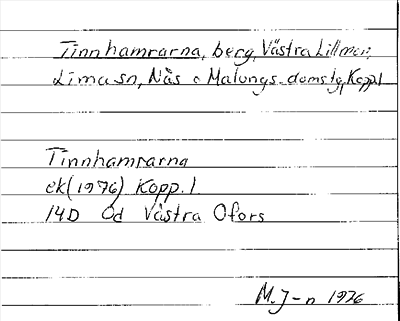 Tinnhamrarna, berg, Västra Lillmor,
Lima sn, Nås o Malungs domsg, Kopp.l
Tinnhamrarna
ek (1976) Kopp.l
14D Od Västra Ofors
M.J-n 1976